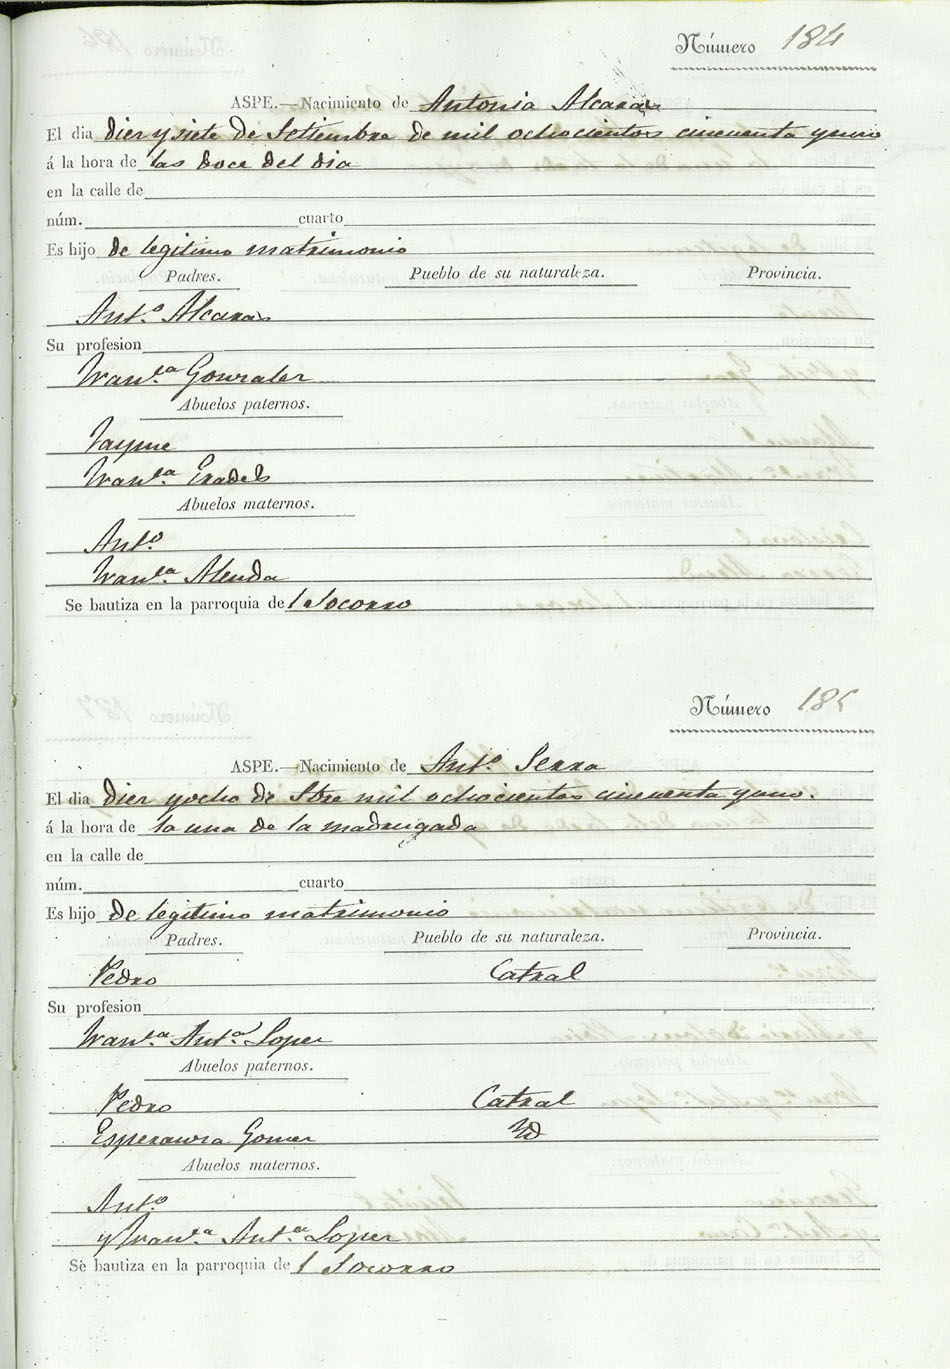 Número 184
ASPE.—Nacimiento de Antonia Alcaras
El dia diez y siete de Setiembre de mil ochocientos cincuenta y uno
á la hora de las doce del dia
en la calle de
núm. cuarto
Es hijo de legitimo matrimonio
Padres. Pueblo de su naturaleza. Provincia.
Ant.º Alcaras
Su profesion
Fran.ca Gonzalez
Abuelos paternos.
Jayme
Fran.ca Pradels
Abuelos maternos.
Ant.º
Fran.ca Alenda
Se bautiza en la parroquia del Socorro
Número 185
ASPE.—Nacimiento de Ant.º Serra
El dia diez y ocho de Stre mil ochocientos cincuenta y uno
á la hora de la una de la madrugada
en la calle de
núm. cuarto
Es hijo de legitimo matrimonio
Padres. Pueblo de su naturaleza. Provincia.
Pedro Catral
Su profesion
Fran.ca Ant.a Lopez
Abuelos paternos.
Pedro Catral
Esperanza Gomez Yd
Abuelos maternos.
Ant.º
y Fran.ca Ant.a Lopez
Se bautiza en la parroquia del Socorro